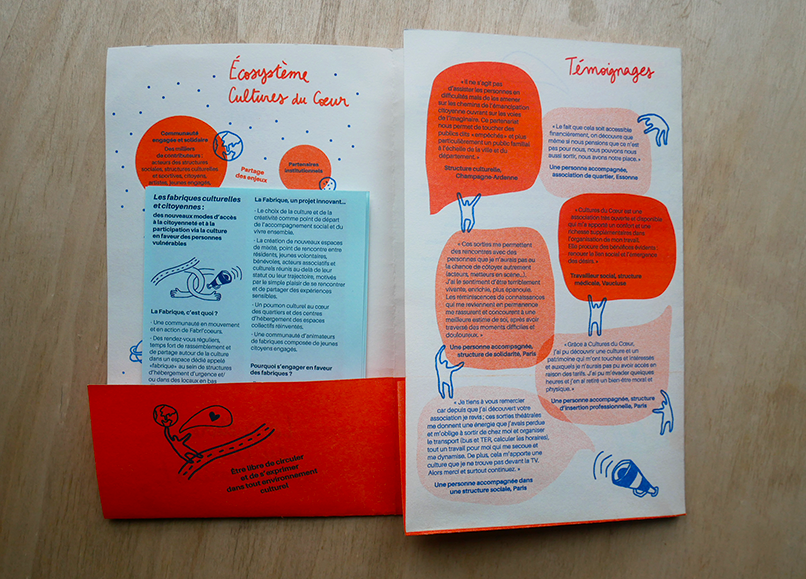 Écosystème
Cultures du Cœur
Communauté
engagée et solidaire
Des milliers
de contributeurs :
acteurs des structures
sociales, structures culturelles
et sportives, citoyens,
artistes, jeunes engagés,
Partage
des enjeux
Partenaires
institutionnels
Les fabriques culturelles
et citoyennes :
des nouveaux modes d'accès
à la citoyenneté et à la
participation via la culture
en faveur des personnes
vulnérables
La Fabrique, c'est quoi ?
· Une communauté en mouvement
et en action de Fabri'coeurs.
· Des rendez-vous réguliers,
temps fort de rassemblement et
de partage autour de la culture
dans un espace dédié appelé
«fabrique» au sein de structures
d'hébergement d'urgence et/
ou dans des locaux en bas
La Fabrique, un projet innovant...
· Le choix de la culture et de la
créativité comme point de départ
de l'accompagnement social et du
vivre ensemble.
· La création de nouveaux espaces
de mixité, point de rencontre entre
résidents, jeunes volontaires,
bénévoles, acteurs associatifs et
culturels réunis au-delà de leur
statut ou leur trajectoire, motivés
par le simple plaisir de se rencontrer
et de partager des expériences
sensibles.
· Un poumon culturel au cœur
des quartiers et des centres
d'hébergement des espaces
collectifs réinventés.
· Une communauté d'animateurs
de fabriques composée de jeunes
citoyens engagés.
Pourquoi s'engager en faveur
des fabriques ?
Être libre de circuler
et de s'exprimer
dans tout environnement
culturel
Témoignages
« Il ne s'agit pas
d'assister les personnes en
difficultés mais de les amener
sur les chemins de l'émancipation
citoyenne ouvrant sur les voies
de l'imaginaire. Ce partenariat
nous permet de toucher des
publics dits « empêchés » et plus
particulièrement un public familial
à l'échelle de la ville et du
département. »
Structure culturelle,
Champagne-Ardenne
« Le fait que cela soit accessible
financièrement, on découvre que
même si nous pensions que ce n'est
pas pour nous, nous pouvons nous
aussi sortir, nous avons notre place. »
Une personne accompagnée,
association de quartier, Essonne
« Cultures du Cœur est une
association très ouverte et disponible
qui m'a apporté un soutien et une
richesse supplémentaires dans
l'organisation de mon travail.
Elle procure des bénéfices évidents :
Travailleur social, structure
médicale, Vaucluse
« Ces sorties me permettent
des rencontres avec des
personnes que je n'aurais pas eu
la chance de côtoyer autrement
(acteurs, metteurs en scène...).
J'ai le sentiment d'être terriblement
vivante, enrichie, plus épanouie.
Les réminiscences de connaissances
qui me reviennent en permanence
me rassurent et concourent à une
meilleure estime de soi, après avoir
traversé des moments difficiles et
douloureux. »
Une personne accompagnée,
structure de solidarité, Paris
« Grâce à Cultures du Cœur,
j'ai pu découvrir une culture et un
patrimoine qui m'ont touchés et intéressés
et auxquels je n'aurais pas pu avoir accès en
raison des tarifs. J'ai pu m'évader quelques
heures et j'en ai retiré un bien-être moral et
physique. »
Une personne accompagnée, structure
d'insertion professionnelle, Paris
« Je tiens à vous remercier
car depuis que j'ai découvert votre
association je revis ; ces sorties théâtrales
me donnent une énergie que j'avais perdue
et m'oblige à sortir de chez moi et organiser
le transport (bus et TER, calculer les horaires),
tout un travail pour moi qui me secoue et
me dynamise. De plus, cela m'apporte une
culture que je ne trouve pas devant la TV.
Alors merci et surtout continuez. »
Une personne accompagnée dans
une structure sociale, Paris